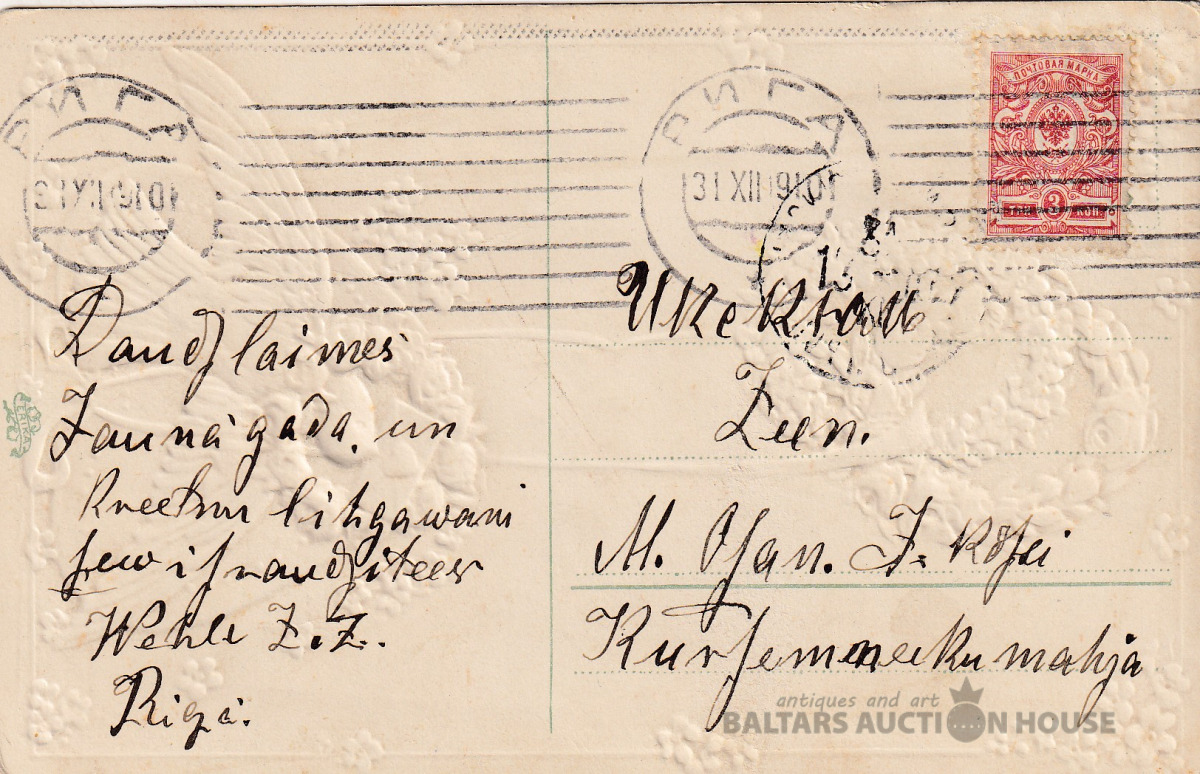 РИГА
31 XII 1910
РИГА
31 XII 1910
ПОЧТОВАЯ МАРКА
3 КОП
Daudz laimes
Jauná gada, un
kreetnu lihgawani
sew israudzitees
Wehle Z.Z.
Rigá.
ERIKA
Zeen.
M. Osan. J. Rösei
Kursemneeku mahja
antiques and art
BALTARS AUCTION HOUSE